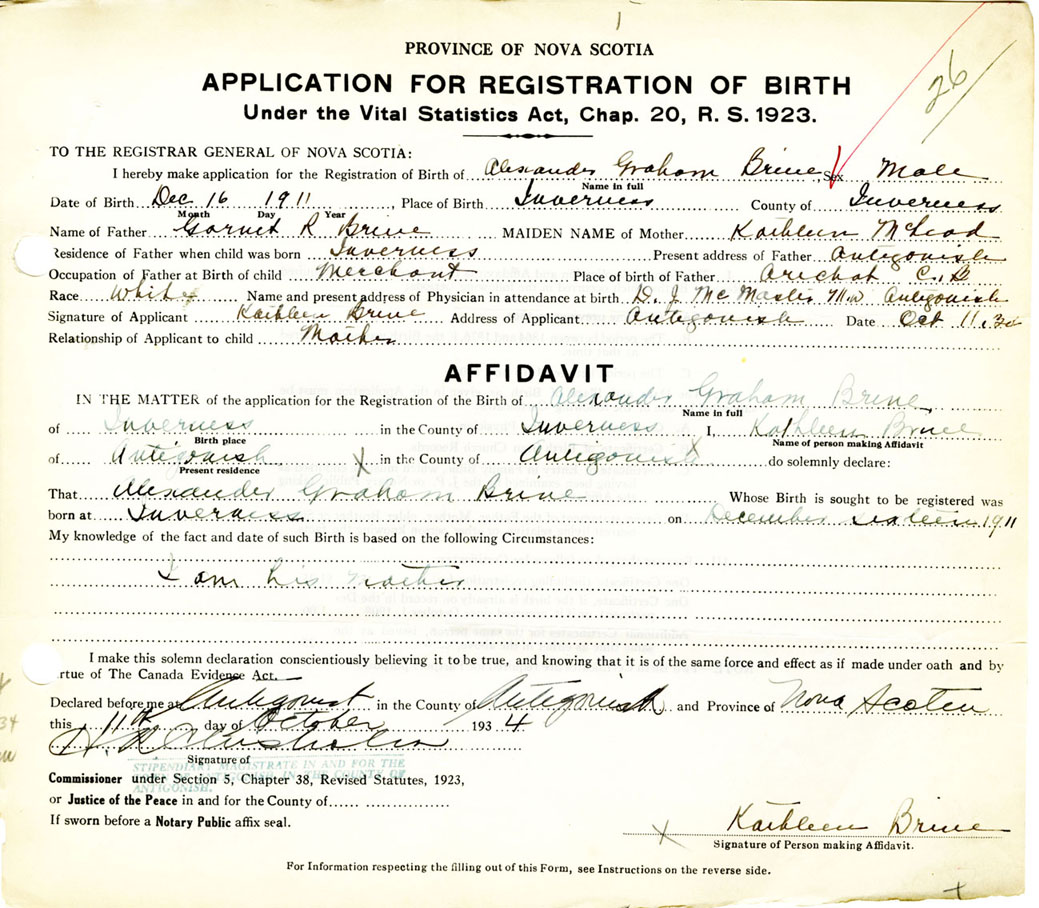 26
PROVINCE OF NOVA SCOTIA
APPLICATION FOR REGISTRATION OF BIRTH
Under the Vital Statistics Act, Chap. 20, R. S. 1923.
TO THE REGISTRAR GENERAL OF NOVA SCOTIA:
I hereby make application for the Registration of Birth of Alexander Graham Brine, Sex Male
Name in full
Date of Birth Dec 16 1911, Place of Birth Inverness County of Inverness
Month Day Year
Name of Father Garnet R Brine MAIDEN NAME of Mother Kathleen McLeod
Residence of Father when child was born Inverness Present address of Father Antigonish
Occupation of Father at Birth of child Merchant Place of birth of Father Arichat C. B
Race White Name and present address of Physician in attendance at birth D. J McMaster M.D Antigonish
Signature of Applicant Kathleen Brine Address of Applicant Antigonish Date Oct 11. 34
Relationship of Applicant to child Mother
AFFIDAVIT
IN THE MATTER of the application for the Registration of the Birth of Alexander Graham Brine
Name in full
of Inverness in the County of Inverness I, Kathleen Brine
Birth place Name of person making Affidavit
of Antigonish X in the County of Antigonish X do solemnly declare:
Present residence
That Alexander Graham Brine Whose Birth is sought to be registered was
born at Inverness on December sixteen 1911
My knowledge of the fact and date of such Birth is based on the following Circumstances:
I am his mother
I make this solemn declaration conscientiously believing it to be true, and knowing that it is of the same force and effect as if made under oath and by
rtue of The Canada Evidence Act.
Declared before me at Antigonish in the County of Antigonish and Province of Nova Scotia
this 11th day of October 1934
Signature of
STIPENDIARY MAGISTRATE IN AND FOR THE
OF ANTIGONISH IN THE COUNTY OF
ANTIGONISH.
Commissioner under Section 5, Chapter 38, Revised Statutes, 1923,
or Justice of the Peace in and for the County of
If sworn before a Notary Public affix seal.
X Kathleen Brine
Signature of Person making Affidavit.
For Information respecting the filling out of this Form, see Instructions on the reverse side.